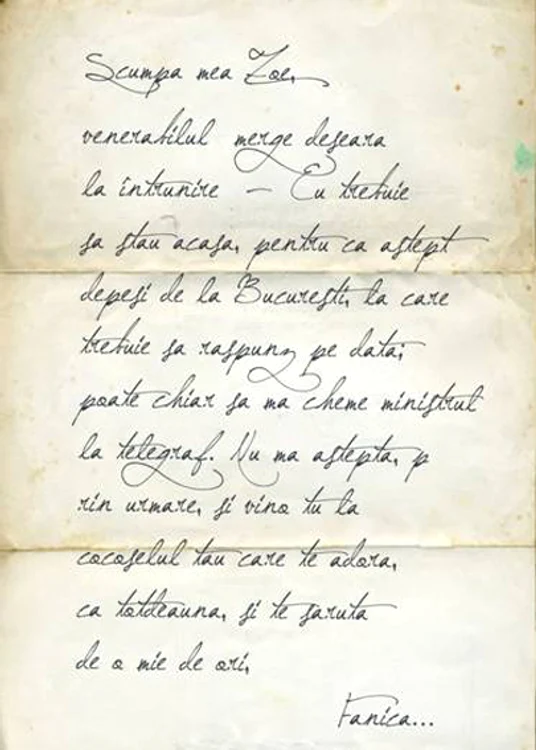 Scumpa mea Zoe,
venerabilul merge deseara
la intrunire – Eu trebuie
sa stau acasa, pentru ca astept
depesi de la Bucuresti, la care
trebuie sa raspunz pe data;
poate chiar sa ma cheme ministrul
la telegraf. Nu ma astepta, p
rin urmare, si vino tu la
cocoselul tau care te adora,
ca totdeauna, si te saruta
de o mie de ori,
Fanica...